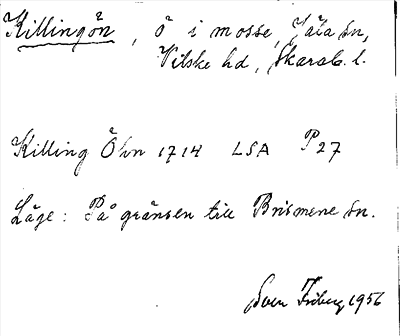 Killingön, ö i mosse, Jäla sn,
Vilske hd, Skarab. l.
Killing Öhn 1714 LSA P27
Läge: På gränsen till Brismene sn.
Sven Friberg 1956